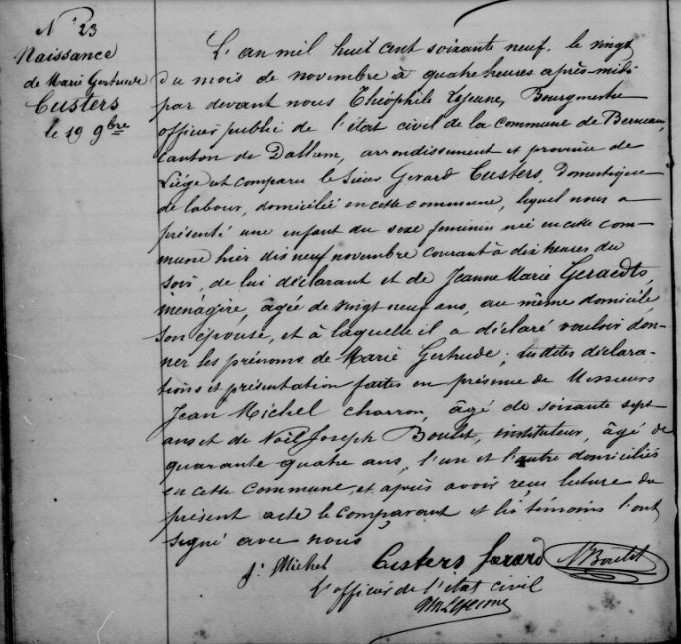 N° 23
Naissance
de Marie Gertrude
Custers
le 19 9bre
L'an mil huit cent soixante neuf. le vingt
du mois de novembre à quatre heures après-midi
par devant nous Théophile Lejeune, Bourgmestre
officier public de l'état civil de la commune de Berneau,
canton de Dalhem, arrondissement et province de
Liége est comparu le sieur Gerard Custers, Domestique
de labour, domicilié en cette commune, lequel nous a
présenté une enfant du sexe feminin née en cette com-
mune hier dix neuf novembre courant à dix heures du
soir, de lui déclarant et de Jeanne Marie Geraedts,
ménagère, âgée de vingt neuf ans, au même domicile,
son épouse, et à laquelle il a déclaré vouloir don-
ner les prénoms de Marie Gertrude; lesdites déclara-
tions et présentation faites en présence de Messieurs
Jean Michel Charron, âgé de soixante sept
ans et de Noël Joseph Boulet, instituteur, âgé de
quarante quatre ans, l'un et l'autre domiciliés
en cette commune, et après avoir reçu lecture du
présent acte le comparant et les témoins l'ont
signé avec nous
J. Michel Custers Gerard N Boulet
L'officier de l'état civil
Th Lejeune